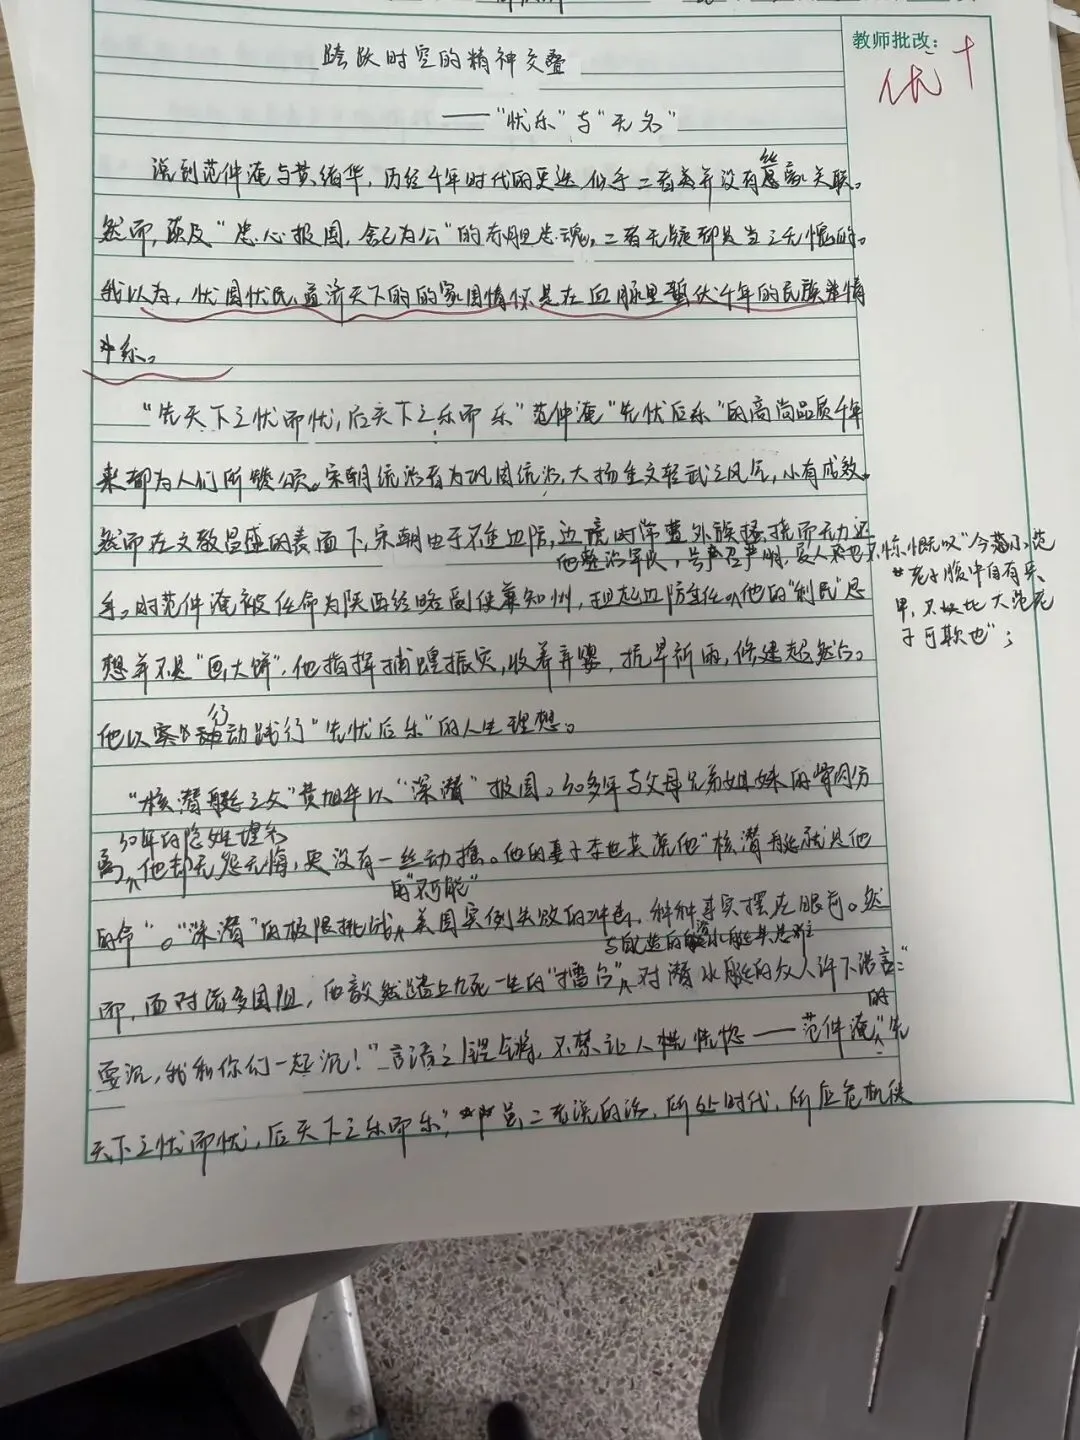 教师批改:
优+
跨跃时空的精神交叠
——"忧乐"与"无名"
说到范仲淹与黄绪华,历经千年时代的更迭似乎二者并没有丝毫关联。
然而,谈及"忠心报国,舍己为公"的赤胆忠魂,二者无疑都是当之无愧的。
我以为,忧国忧民、兼济天下的的家国情怀是在血脉里蛰伏千年的民族
"先天下之忧而忧,后天下之乐而乐"范仲淹"先忧后乐"的高尚品质千年
来都为人们所赞颂。宋朝统治者为巩固统治,大扬重文轻武之风气,小有成效。
然而在文教昌盛的表面下,宋朝由于不重边防,边境时常遭外族侵扰而无力还
他整治军队,号严召严明,爱人 "今 小范
老子腹中自有兵
甲,不似比大范老
子可欺也";
手。时范仲淹被任命为陕西经略副使兼知州,担起边防重任。他的"利民"思
想并不是"画大饼",他指挥捕蝗振灾,收养弃婴,抗旱祈雨,修建超然台。
他以实际行动践行"先忧后乐"的人生理想。
"核潜艇之父"黄旭华以"深潜"报国。30多年与父母兄弟姐妹的骨肉分
30年的隐姓埋名
离,他却无怨无悔,更没有一丝动摇。他的妻子李世英说他"核潜艇就是他
的"不可能"
的命"。"深潜"的极限挑战,美国实例失败的冲击,种种事实摆在眼前。然
而,面对诸多困阻,他毅然踏上九死一生的"擂台",对潜水艇的众人许下诺言:"
要沉,我和你们一起沉!"言语之铿锵,不禁让人恍惚——范仲淹的"先
天下之忧而忧,后天下之乐而乐",虽二者说的话,所处时代,所应危机